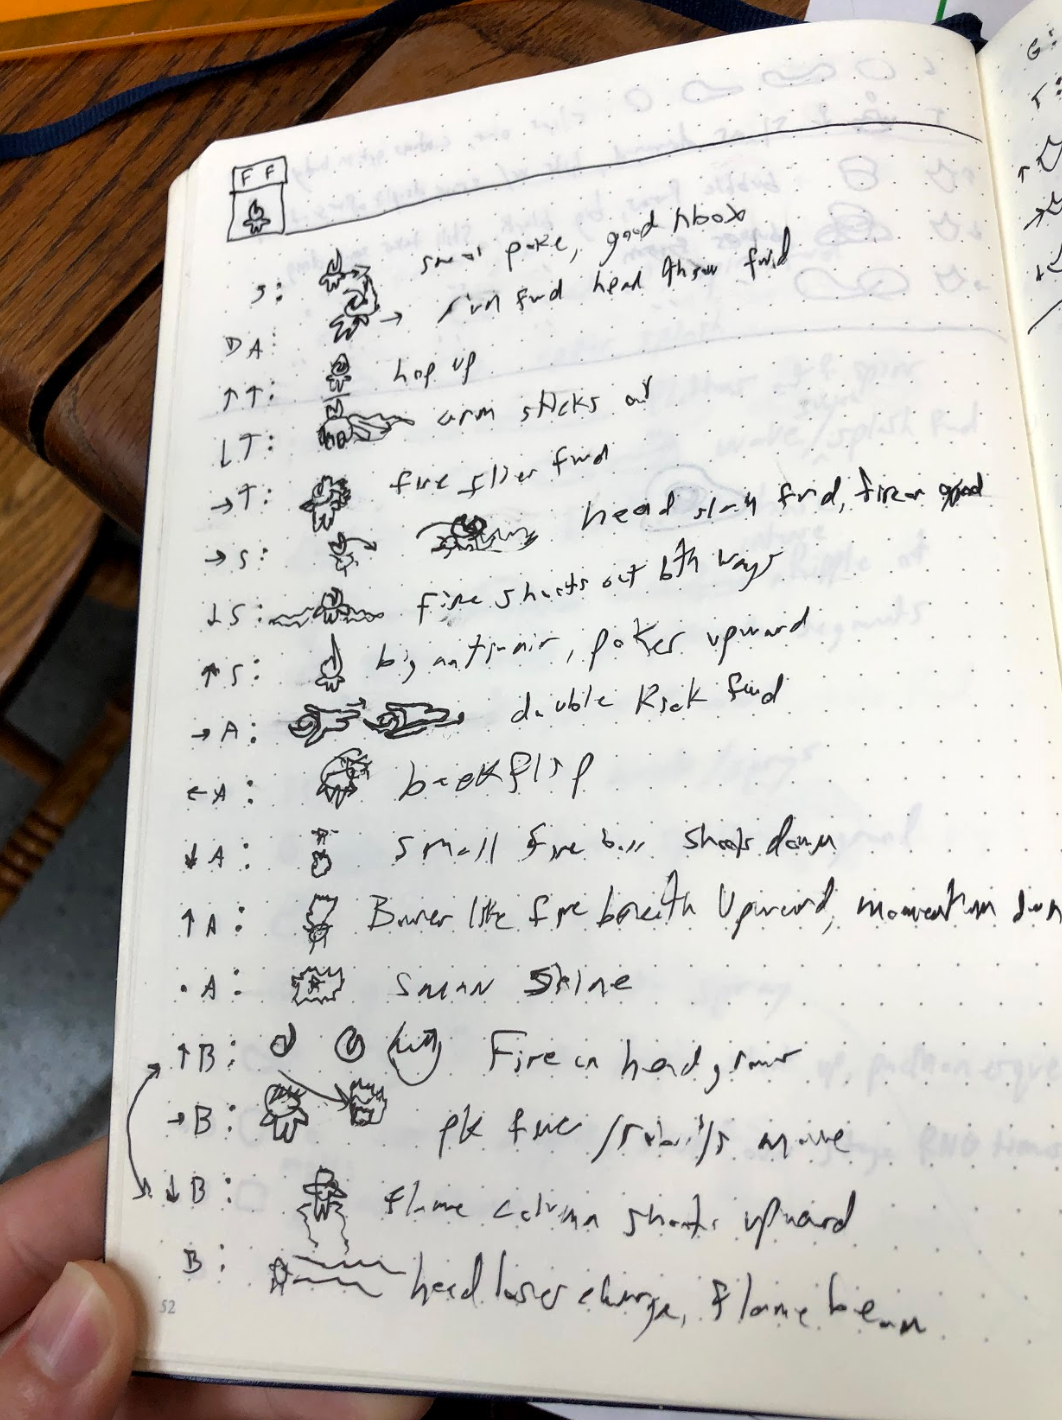 F F
S: small poke, good hbox
DA: → run fwd head thrown fwd
↑T: hop up
↓T: arm sticks out
→T: fire flier fwd
→S: head slam fwd, fire on
↓S: Fire shoots out both ways
↑S: big anti-air, poker upward
→A: double kick fwd
←A: backflip
↓A: small fire ball shoots down
↑A: Burner like fire beneath Upward, momentum down
·A: Shine
↑B: Fire on head grows
→B: pk fire / move
↓B: flame column shoots upward
B: head laser charge, flame beam
52
G:
T:
↑
→
↓